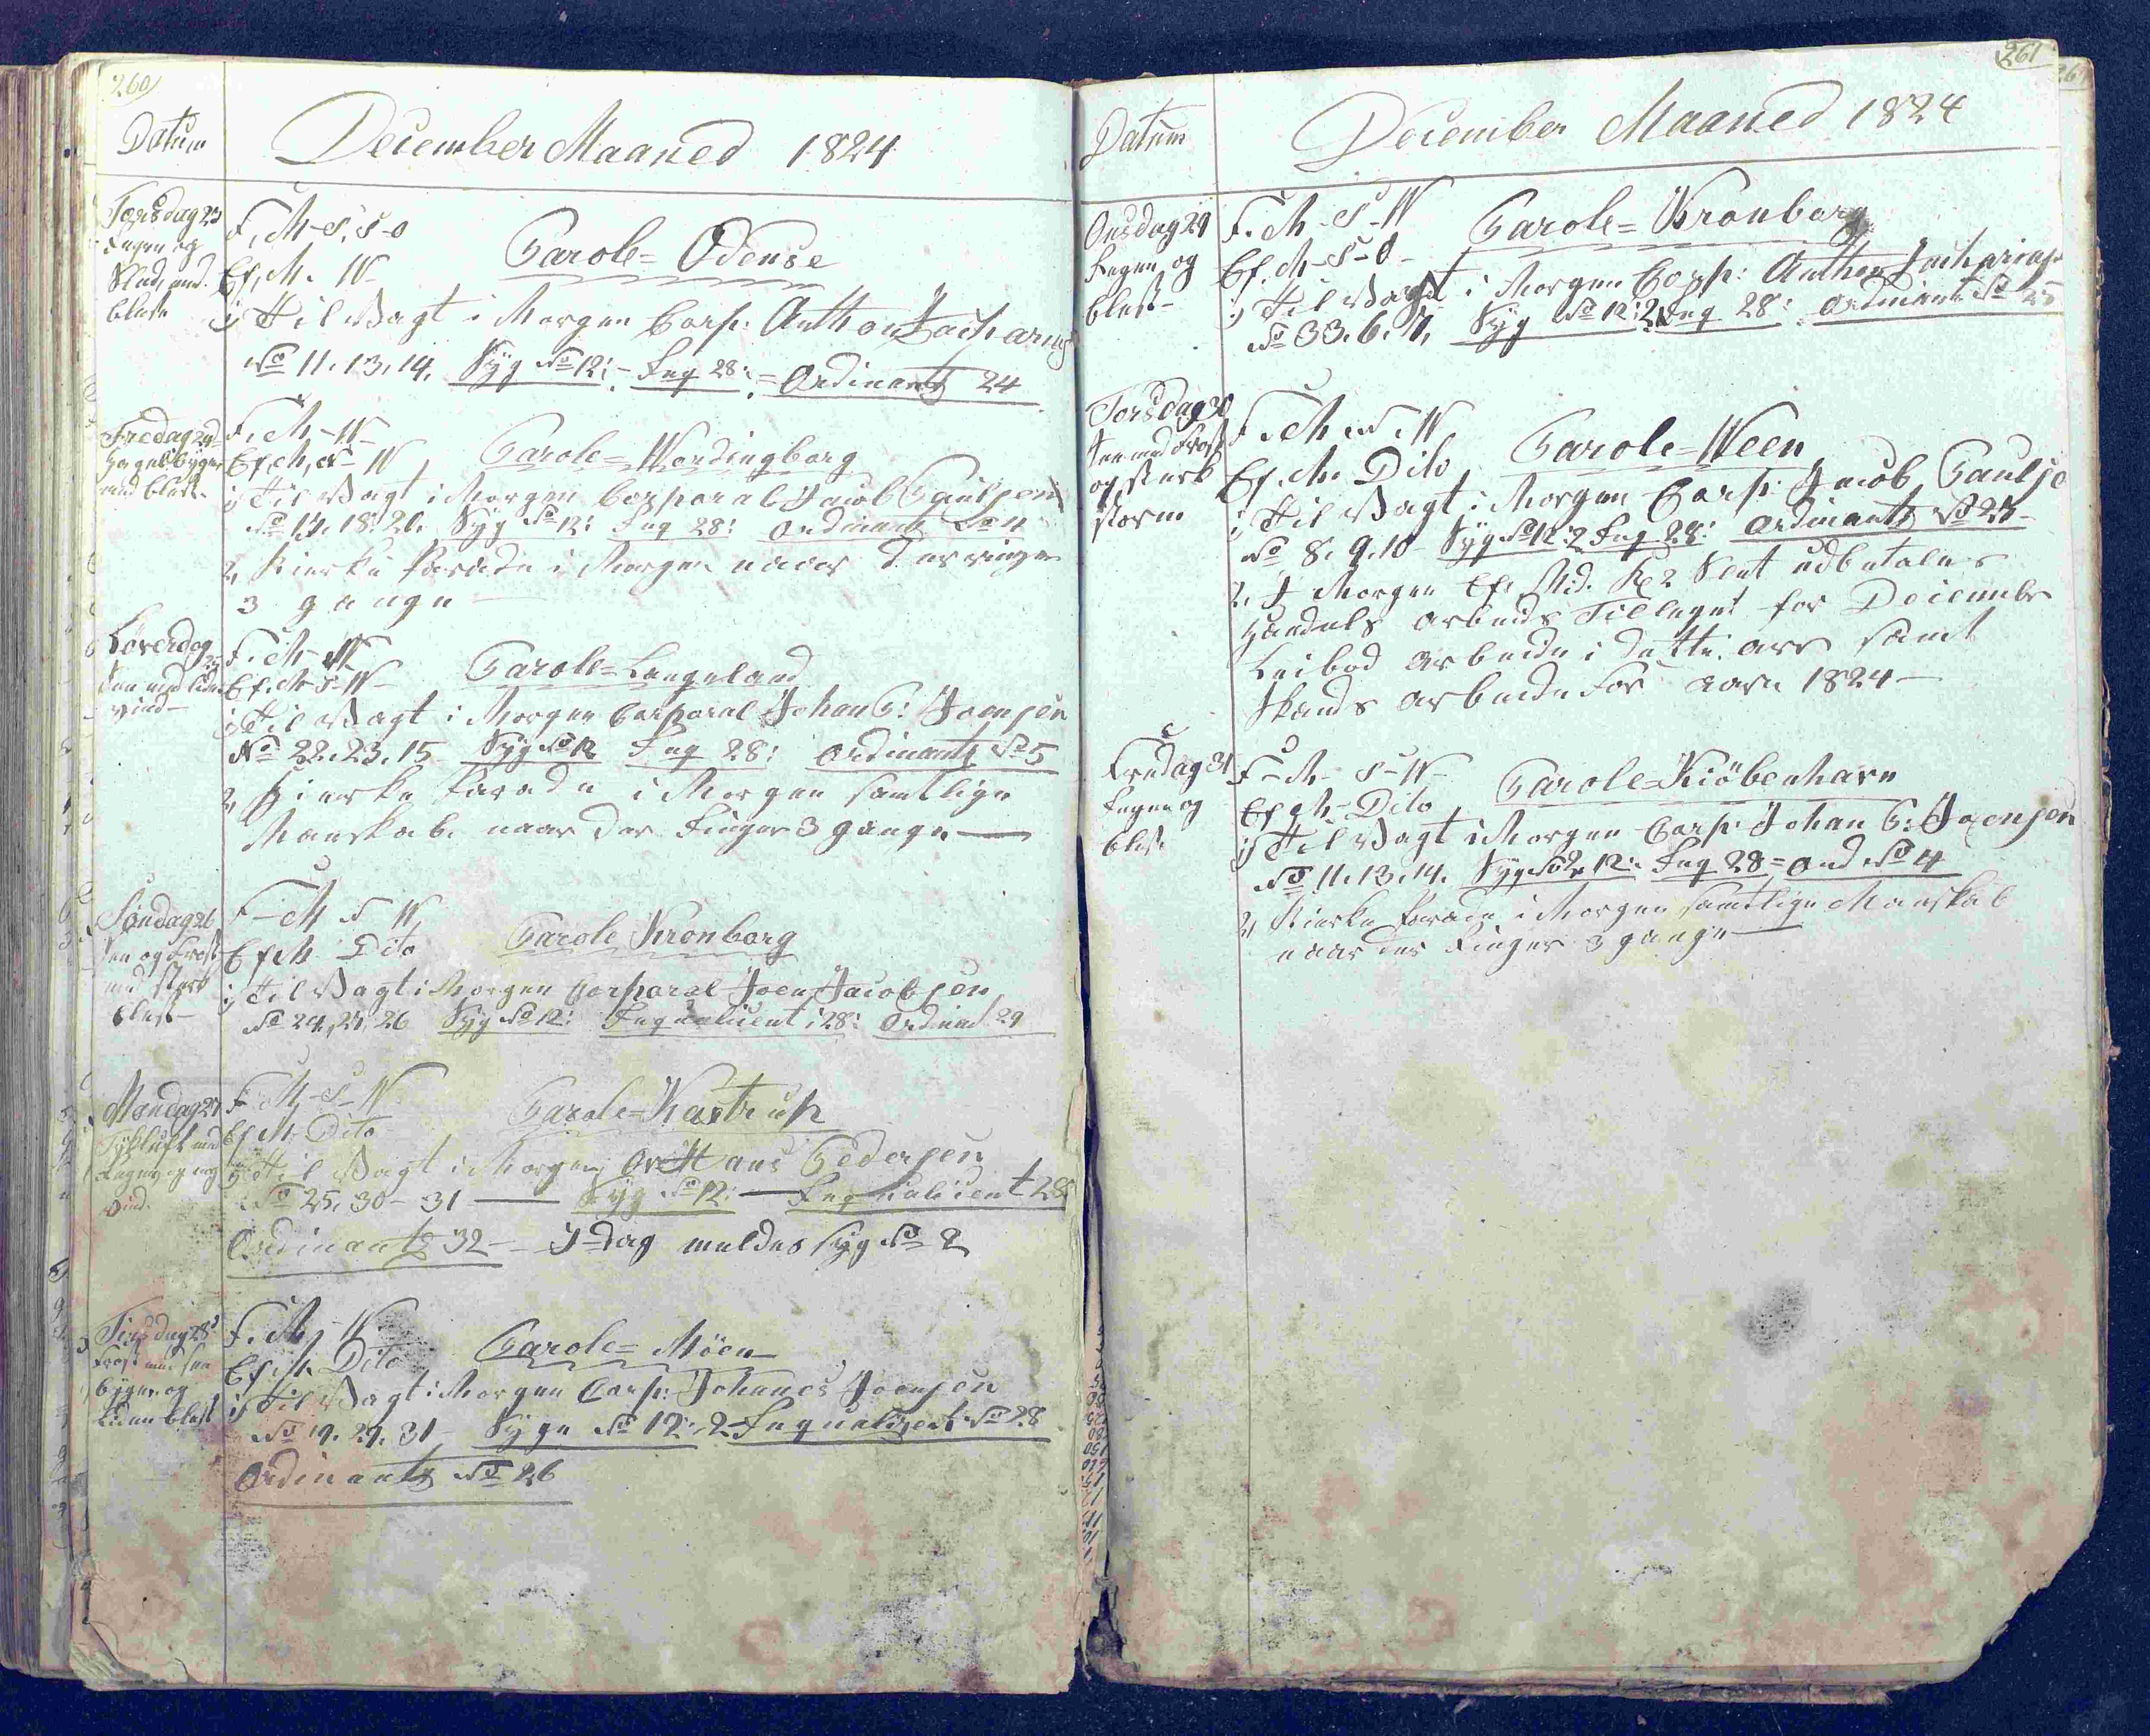 260
Datum
December Maaned 1824
Torsdag 23
Regen og
Slud, med
blæst
F. M - S. S - O
Ef. M. W -
Parole = Odense
1, Til Vagt i Morgen Corp: Anthon Zacharias
No 11. 13. 14. Syg No 12: - Inq 28: = Ordinants 24
Fredag 24
Hagelbyger
med blæst
F. M - W -
Ef. M, N - W
Parole = Wordingborg
1, Til Vagt i Morgen Corporal Jacob Paulsen
No 17. 18. 20. Syg No 12: Inq 28: Ordinants No 4
2, Kierke Parade i Morgen naar der ringes
3 gange
Løverdag
25
Snee med liden
vind -
F. M - W
Ef. M S - W -
Parole = Langeland
1, Til Vagt i Morgen Corporal Johan P: Joensen
No 22. 23. 15 Syg No 12 Inq 28: Ordinants No 5
2, Kierke Parade i Morgen samtlige
Manskab. naar der Ringes 3 gange —
Søndag 26
Snee og Frost
med sterk
blæst -
F - M N W
Ef M Dito
Parole Kronborg
1, Til Vagt i Morgen Corporal Joen Jacobsen
No 24, 27, 26 Syg No 12: Inqvalicent: 28: Ordinand 29
Mandag 27
Tykluft med
Regen og
vind.
F M - S - W
Ef M, Dito
Parole = Kastrup
1, Til Vagt i Morgen Hans Pedersen
No 25. 30 - 31 — Syg No 12: — Inqvalicent 28
Ordinants 32 - I dag meldes syg No 2
Tirsdag 28
Frost med Snee
byger og
Liden blæst
F. M, - W
Ef. M. Dito
Parole = Möen
1, Til Vagt i Morgen Corp: Johanes Joensen
No 19. 29. 31 - Syge No 12: 2 Inqvalicent No 28
Ordinants No 26
261
Datum
December Maaned 1824
Onsdag 29
Regen og
blæst -
F. M - S - W
Ef. M - S - O -
Parole = Kronborg
1, Til Vagt i Morgen Corp: Anthon Zacharias
No 33. 6. 7, Syg No 12: 2, Inq 28: Ordinants No 25
Torsdag 30
Snee med Frost
og sterk
storm
F. M N. W
Ef. M. Dito
Parole = Ween
1, Til Vagt i Morgen Corp: Jacob Paulse
No 8. 9. 10 - Syg No 12: 2 Inq 28: Ordinants No 27 -
2, I Morgen Ef. Mid. Kl 2 Slet udbetales
Handels arbeids Tilleget for December
Leibod arbeide i dette aar samt
Skands arbeide for aaret 1824 -
Fredag 31
Regen og
blæst
F - M - S - W -
Ef M - Dito
Parole = Kiöbenhavn
1, Til Vagt i Morgen Corp: Johan P: Joensen
No 11. 13. 14. Syg No 2, 12: Inq 28 = Ord No 4
2, Kierke Parade i Morgen samtlige Manskab
naar der Ringes 3 gange —